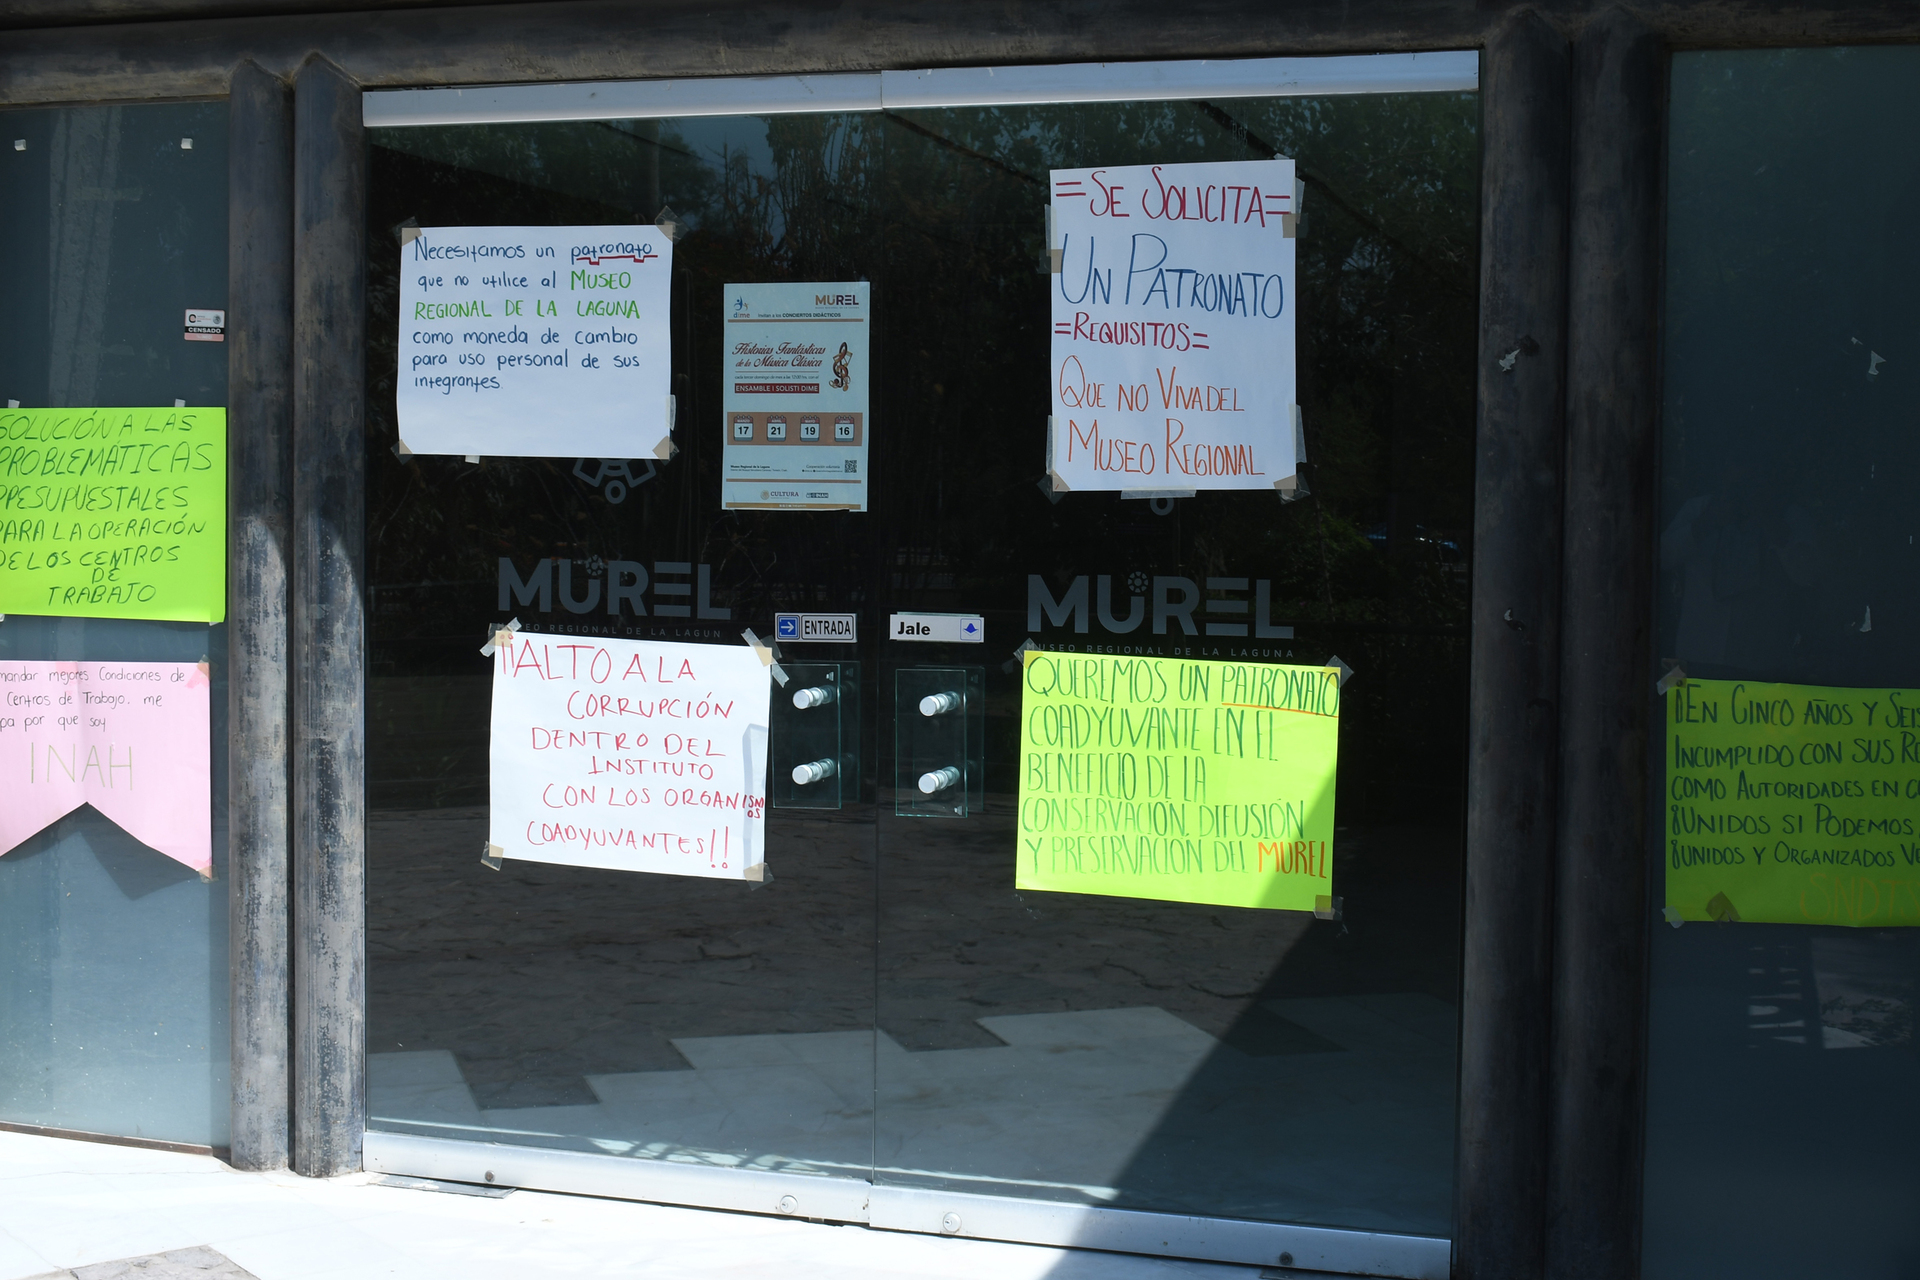 SOLUCIÓN A LAS
PROBLEMÁTICAS
PRESUPUESTALES
PARA LA OPERACIÓN
DE LOS CENTROS
DE
TRABAJO
mejores Condiciones de
Centros de Trabajo. me
por que soy
INAH
CENSADO
Necesitamos un patronato
que no utilice al MUSEO
REGIONAL DE LA LAGUNA
como moneda de cambio
para uso personal de sus
integrantes.
dime
MUREL
invitan a los CONCIERTOS DIDÁCTICOS
Historias Fantásticas
de la Música Clásica
ENSAMBLE I SOLISTI DIME
17 21 19 16
CULTURA INAH
=SE SOLICITA=
UN PATRONATO
=REQUISITOS=
QUE NO VIVA DEL
MUSEO REGIONAL
MUREL
MUSEO REGIONAL DE LA LAGUN
ENTRADA
Jale
MUREL
MUSEO REGIONAL DE LA LAGUNA
¡¡ALTO A LA
CORRUPCIÓN
DENTRO DEL
INSTITUTO
CON LOS ORGANISMOS
COADYUVANTES!!
QUEREMOS UN PATRONATO
COADYUVANTE EN EL
BENEFICIO DE LA
CONSERVACIÓN, DIFUSIÓN
Y PRESERVACIÓN DEL MUREL
¡EN CINCO AÑOS Y SEIS
INCUMPLIDO CON SUS
COMO AUTORIDADES EN
¡UNIDOS SI PODEMOS
¡UNIDOS Y ORGANIZADOS
SNDTS